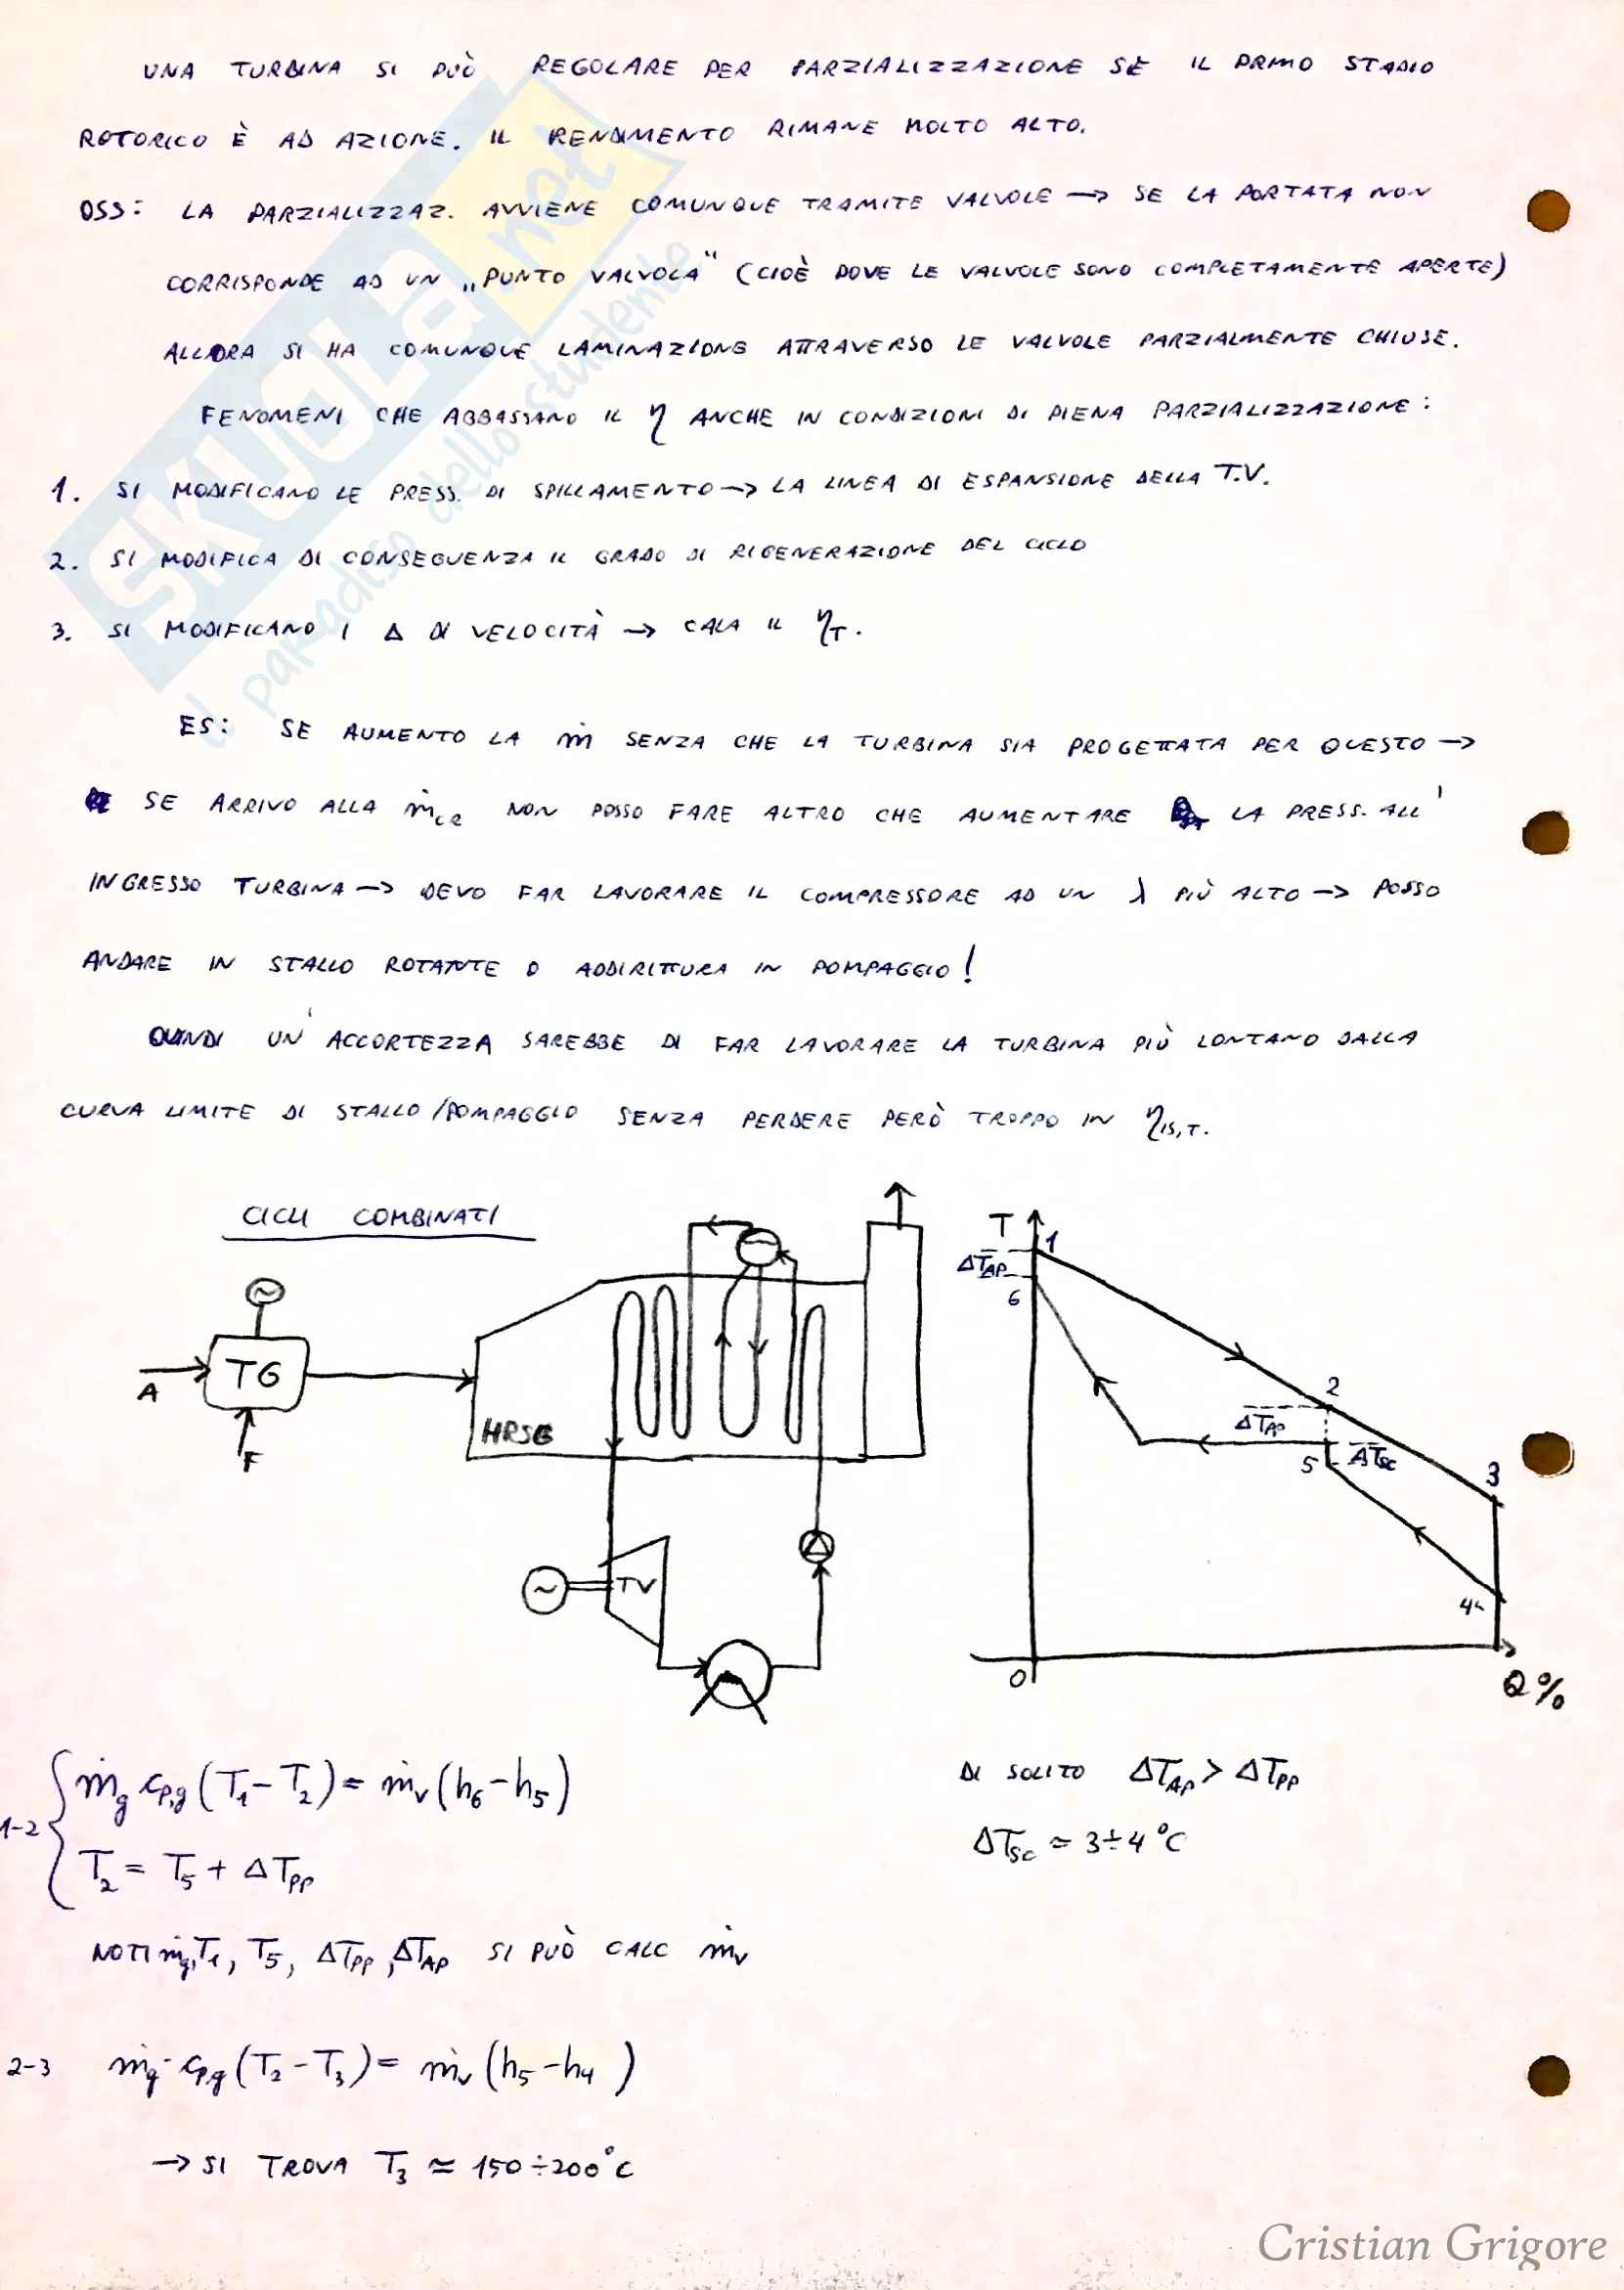 UNA TURBINA SI PUÒ REGOLARE PER PARZIALIZZAZIONE SE IL PRIMO STADIO
ROTORICO È AD AZIONE. IL RENDIMENTO RIMANE MOLTO ALTO.
OSS: LA PARZIALIZZAZ. AVVIENE COMUNQUE TRAMITE VALVOLE → SE LA PORTATA NON
CORRISPONDE AD UN „PUNTO VALVOLA" (CIOÈ DOVE LE VALVOLE SONO COMPLETAMENTE APERTE)
ALLORA SI HA COMUNQUE LAMINAZIONE ATTRAVERSO LE VALVOLE PARZIALMENTE CHIUSE.
FENOMENI CHE ABBASSANO IL η ANCHE IN CONDIZIONI DI PIENA PARZIALIZZAZIONE:
1. SI MODIFICANO LE PRESS. DI SPILLAMENTO → LA LINEA DI ESPANSIONE DELLA T.V.
2. SI MODIFICA DI CONSEGUENZA IL GRADO DI RIGENERAZIONE DEL CICLO
3. SI MODIFICANO I Δ DI VELOCITÀ → CALA IL ηT.
ES: SE AUMENTO LA ṁ SENZA CHE LA TURBINA SIA PROGETTATA PER QUESTO →
SE ARRIVO ALLA ṁCR NON POSSO FARE ALTRO CHE AUMENTARE LA PRESS. ALL'
INGRESSO TURBINA → DEVO FAR LAVORARE IL COMPRESSORE AD UN λ PIÙ ALTO → POSSO
ANDARE IN STALLO ROTANTE O ADDIRITTURA IN POMPAGGIO!
QUINDI UN' ACCORTEZZA SAREBBE DI FAR LAVORARE LA TURBINA PIÙ LONTANO DALLA
CURVA LIMITE DI STALLO/POMPAGGIO SENZA PERDERE PERÒ TROPPO IN ηIS,T.
CICLI COMBINATI
A
TG
F
HRSG
TV
T
1
ΔTAP
6
2
ΔTAP
5
ΔTSC
3
4
0
Q%
1-2
ṁg cp,g (T1 - T2) = ṁv (h6 - h5)
T2 = T5 + ΔTPP
NOTI ṁg, T1, T5, ΔTPP, ΔTAP SI PUÒ CALC ṁv
DI SOLITO ΔTAP > ΔTPP
ΔTSC ≈ 3÷4 °C
2-3 ṁg · cp,g (T2 - T3) = ṁv (h5 - h4)
→ SI TROVA T3 ≈ 150÷200°C
SKUOLA.net
il paradiso dello studente
Cristian Grigore